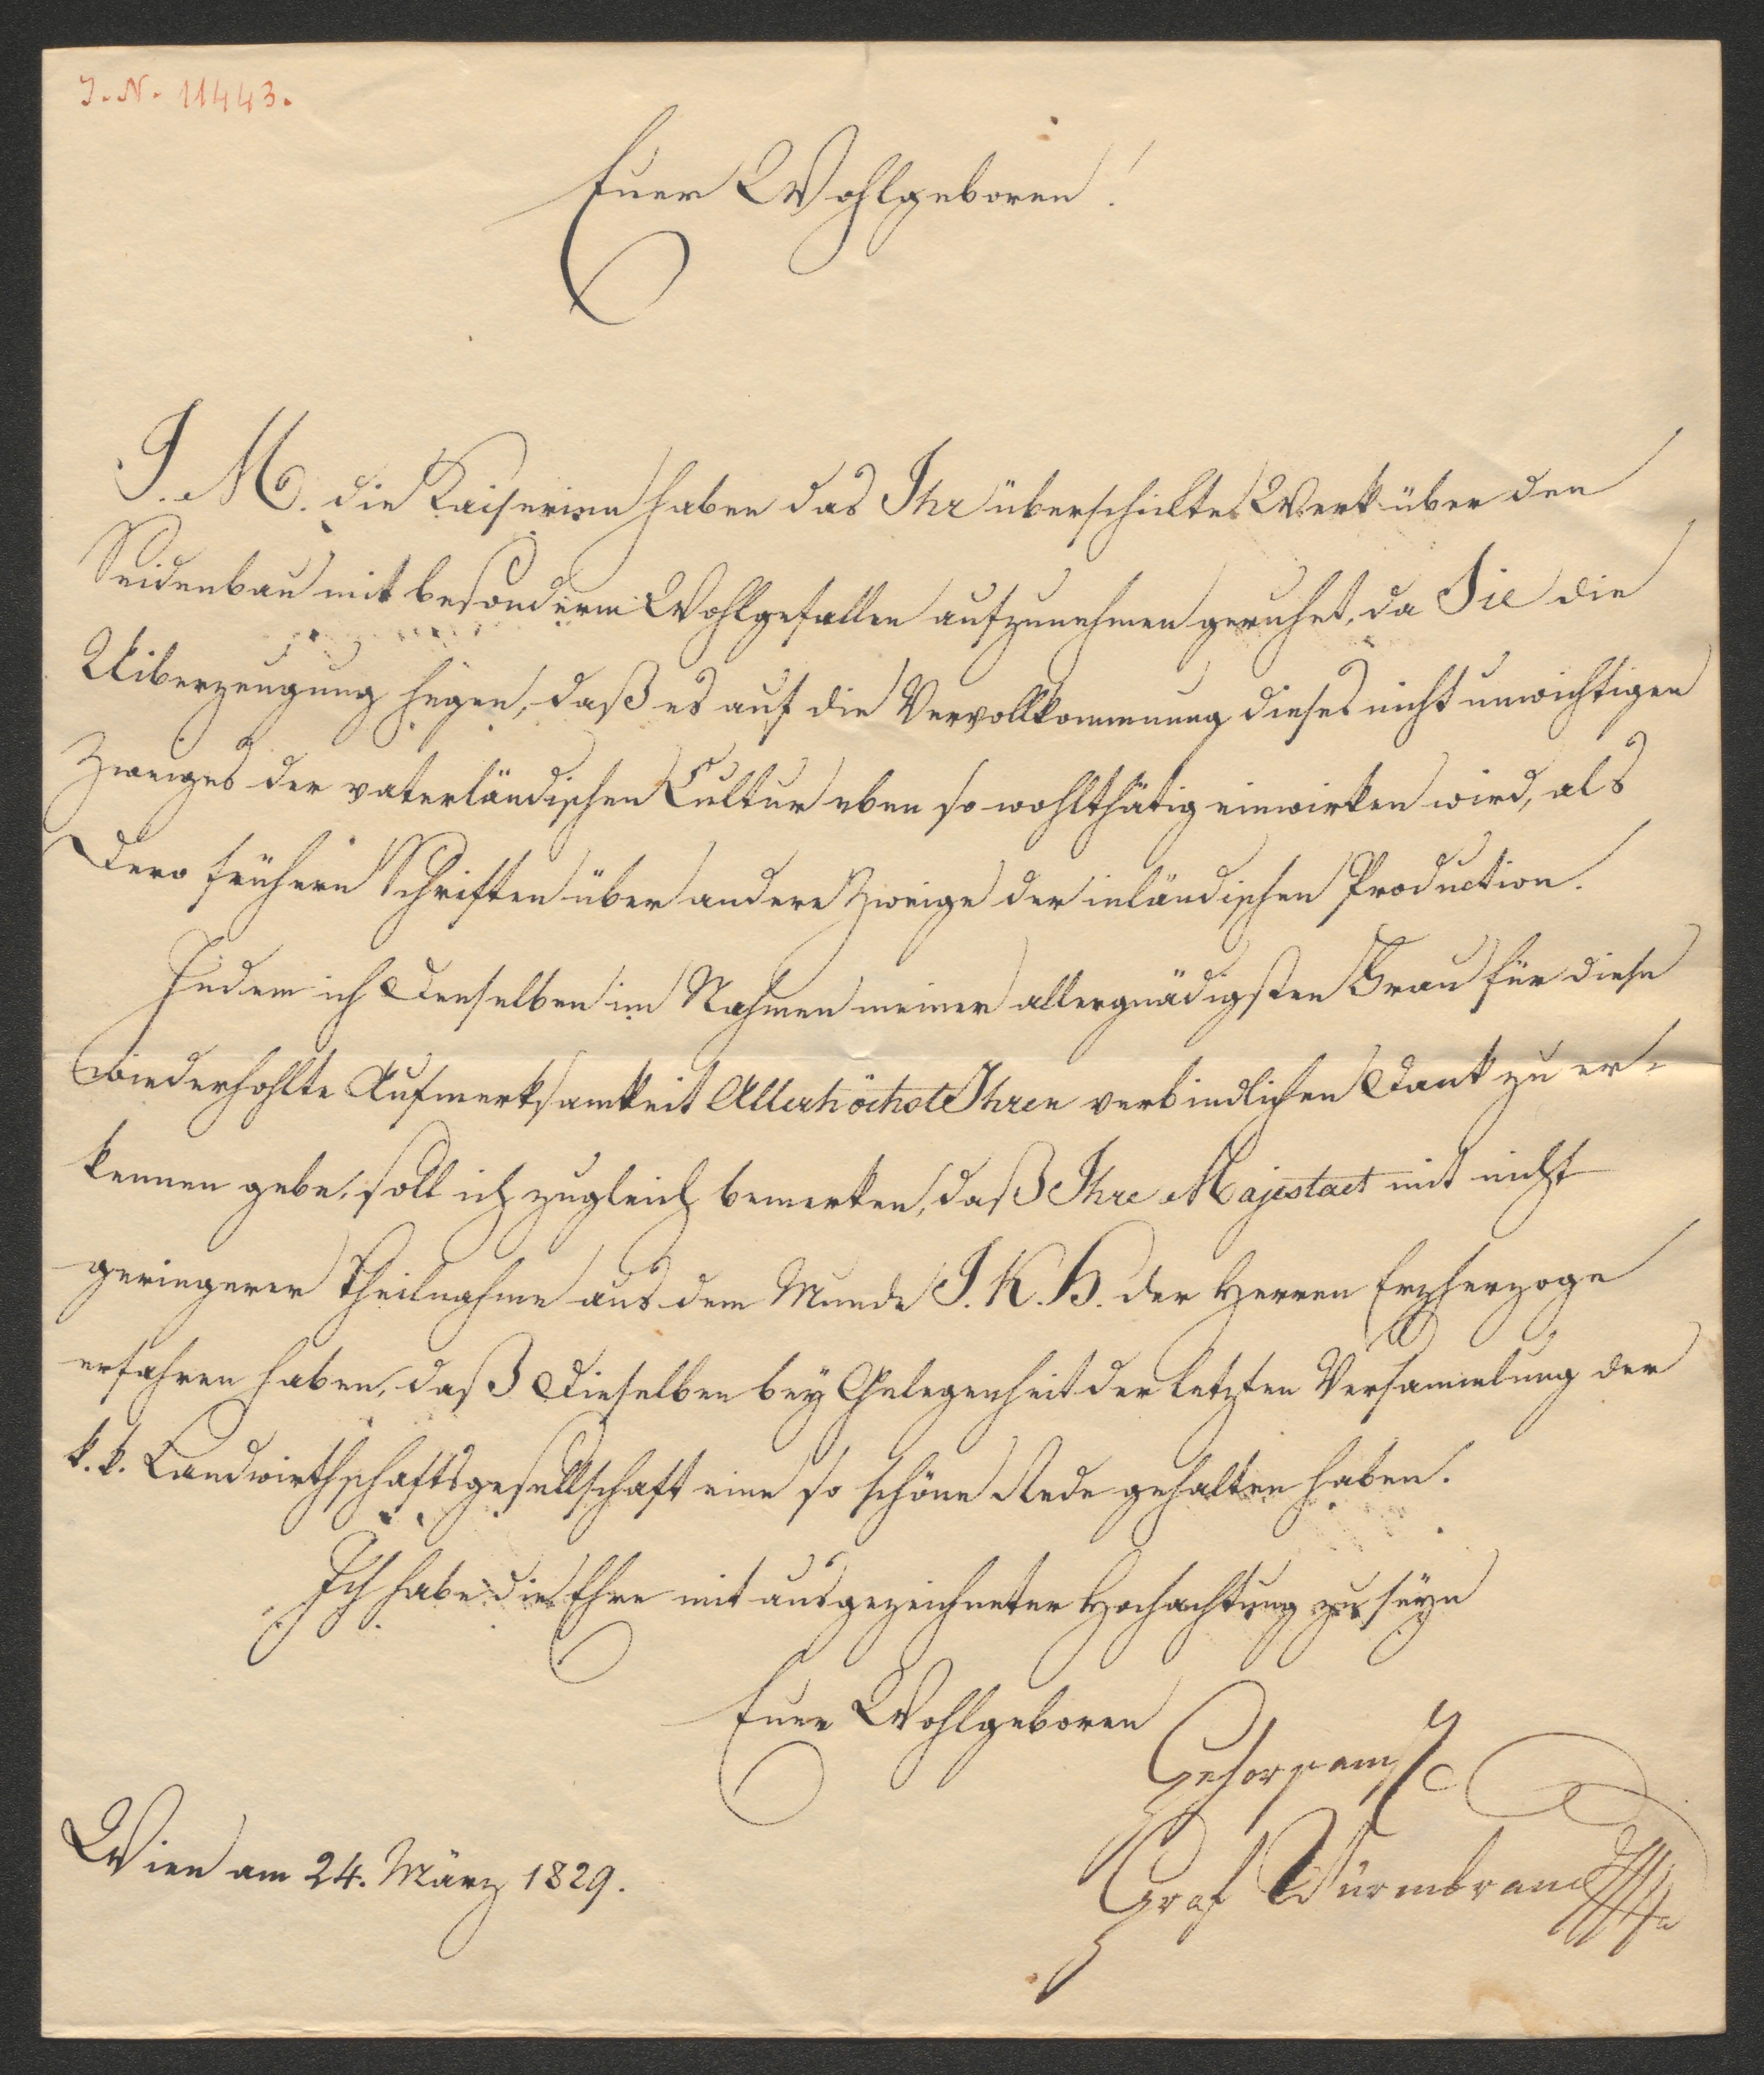 J. N. 11443.
Euer Wohlgeboren!
J. M. die Kaiserinn haben das Ihr überschickte Werk über den
Seidenbau mit besonderm Wohlgefallen aufzunehmen geruhet, da Sie die
Uiberzeugung hegen, daß es auf die Vervollkommnung dieses nicht unwichtigen
Zweiges der vaterländischen Cultur eben so wohlthätig einwirken wird, als
Dero frühern Schriften über andere Zweige der inländischen Production.
Indem ich Denselben im Nahmen meiner allergnädigsten Frau für diese
wiederhohlte Aufmerksamkeit Allerhöchst Ihren verbindlichen Dank zu er-
kennen gebe, soll ich zugleich bemerken, daß Ihre Majestaet mit nicht
geringerer Theilnahme aus dem Munde J. K. H. der Herren Erzherzoge
erfahren haben, daß Dieselben bey Gelegenheit der letzten Versammlung der
k. k. Landwirthschaftsgesellschaft eine so schöne Rede gehalten haben.
Ich habe die Ehre mit ausgezeichneter Hochachtung zu seyn
Euer Wohlgeboren
Gehorsamste
Graf Wurmbrand
Wien am 24. März 1829.